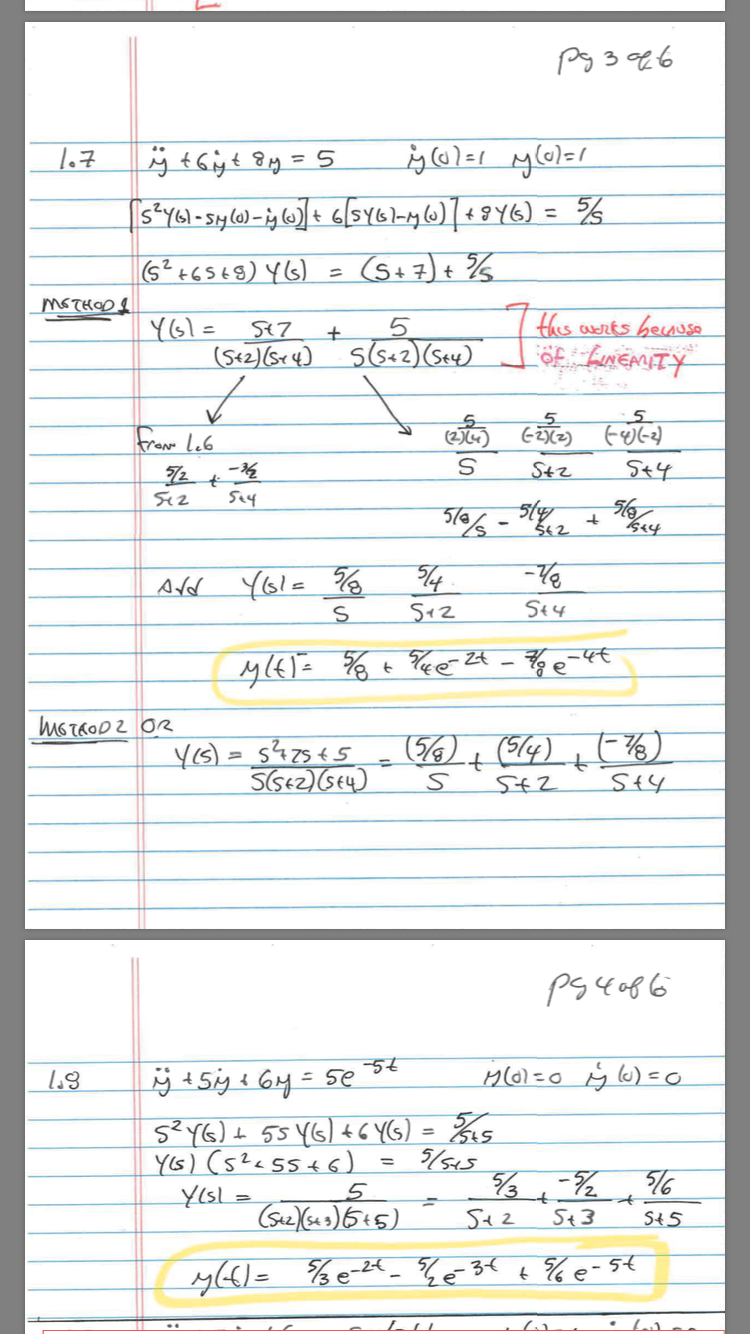 pg 3 of 6
1.7 ÿ + 6ẏ + 8y = 5 ẏ(0)=1 y(0)=1
[s²Y(s) - sy(0) - ẏ(0)] + 6[sY(s) - y(0)] + 8Y(s) = 5/s
(s² + 6s + 8) Y(s) = (s + 7) + 5/s
METHOD 1
Y(s) = s+7/(s+2)(s+4) + 5/s(s+2)(s+4) ] this works because
OF LINEARITY
From 1.6
5/2/s+2 + -3/2/s+4
5/(2)(4)/s 5/(-2)(2)/s+2 5/(-4)(-2)/s+4
5/8/s - 5/4/s+2 + 5/8/s+4
Add Y(s) = 5/8/s 5/4/s+2 -7/8/s+4
y(t) = 5/8 + 5/4e^-2t - 7/8e^-4t
METHOD 2 OR
Y(s) = s²+7s+5/s(s+2)(s+4) = (5/8)/s + (5/4)/s+2 + (-7/8)/s+4
pg 4 of 6
1.8 ÿ + 5ẏ + 6y = 5e^-5t y(0)=0 ẏ(0)=0
s²Y(s) + 5sY(s) + 6Y(s) = 5/s+5
Y(s) (s² + 5s + 6) = 5/s+5
Y(s) = 5/(s+2)(s+3)(s+5) = 5/3/s+2 + -5/2/s+3 + 5/6/s+5
y(t) = 5/3e^-2t - 5/2e^-3t + 5/6e^-5t